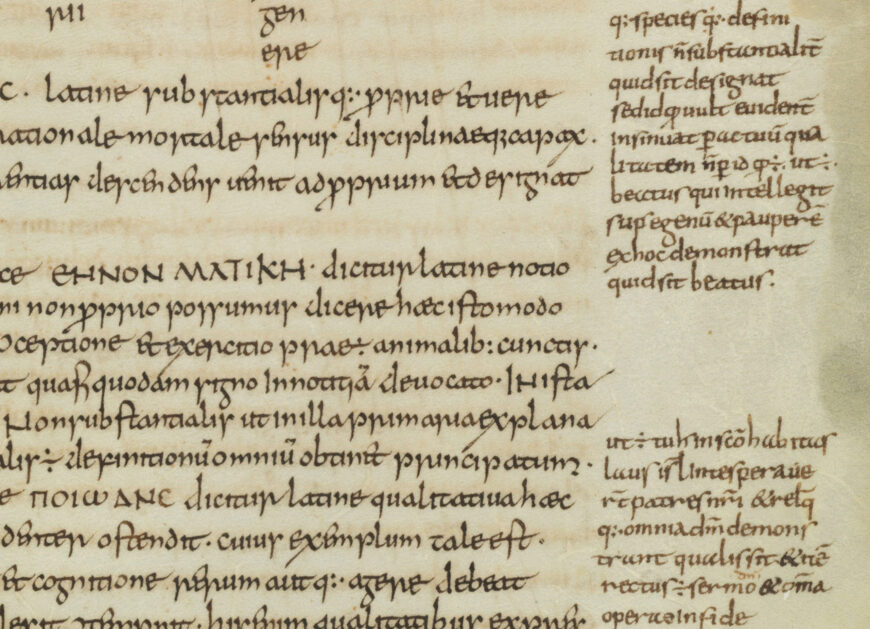 rii gen
ere
C · latine substantialis q: · p̄prie & uere
nationale mortale sensus disciplinaeq; capax ·
entias descendens uenit ad p̄prium & designat
ce EHNON MATIKH · dicitur latine notio
ni non p̄prio possumus dicere hæc isto modo
oceptione & exercitio prae÷ animalib: cunctis ·
quodam signo Innotitiā deuocato · IN ista
Non substantialis ut in illa primaria explana
alis ÷ definitionū omniū obtinet principatum ·
e ΠΟΙωΔΝϹ dicitur latine qualitatiua hæc
denter ostendit · cuius exemplum tale est ·
& cognitione rerum aut q: · agere debeat
qualitatibus
q: species q: · defini
tionis n̄ substantialit̄
quid sit designat
sed id quult euident̄
insinuat p̄ actuū qua
litatem n̄ p̄ id q÷ · ut ÷ ·
beatus qui intellegit
sup̄ egenū & pauperē
ex hoc demonstrat
quid sit beatus ·
ut ÷ tu h̄ in scō habitas
laus isl̄ In te sperauē
rt̄ patres nr̄i & relq̄
q: · omnia dm̄ demons
trant qualis sit & iē
rectus ÷ sermo & om̄a
opera Infide